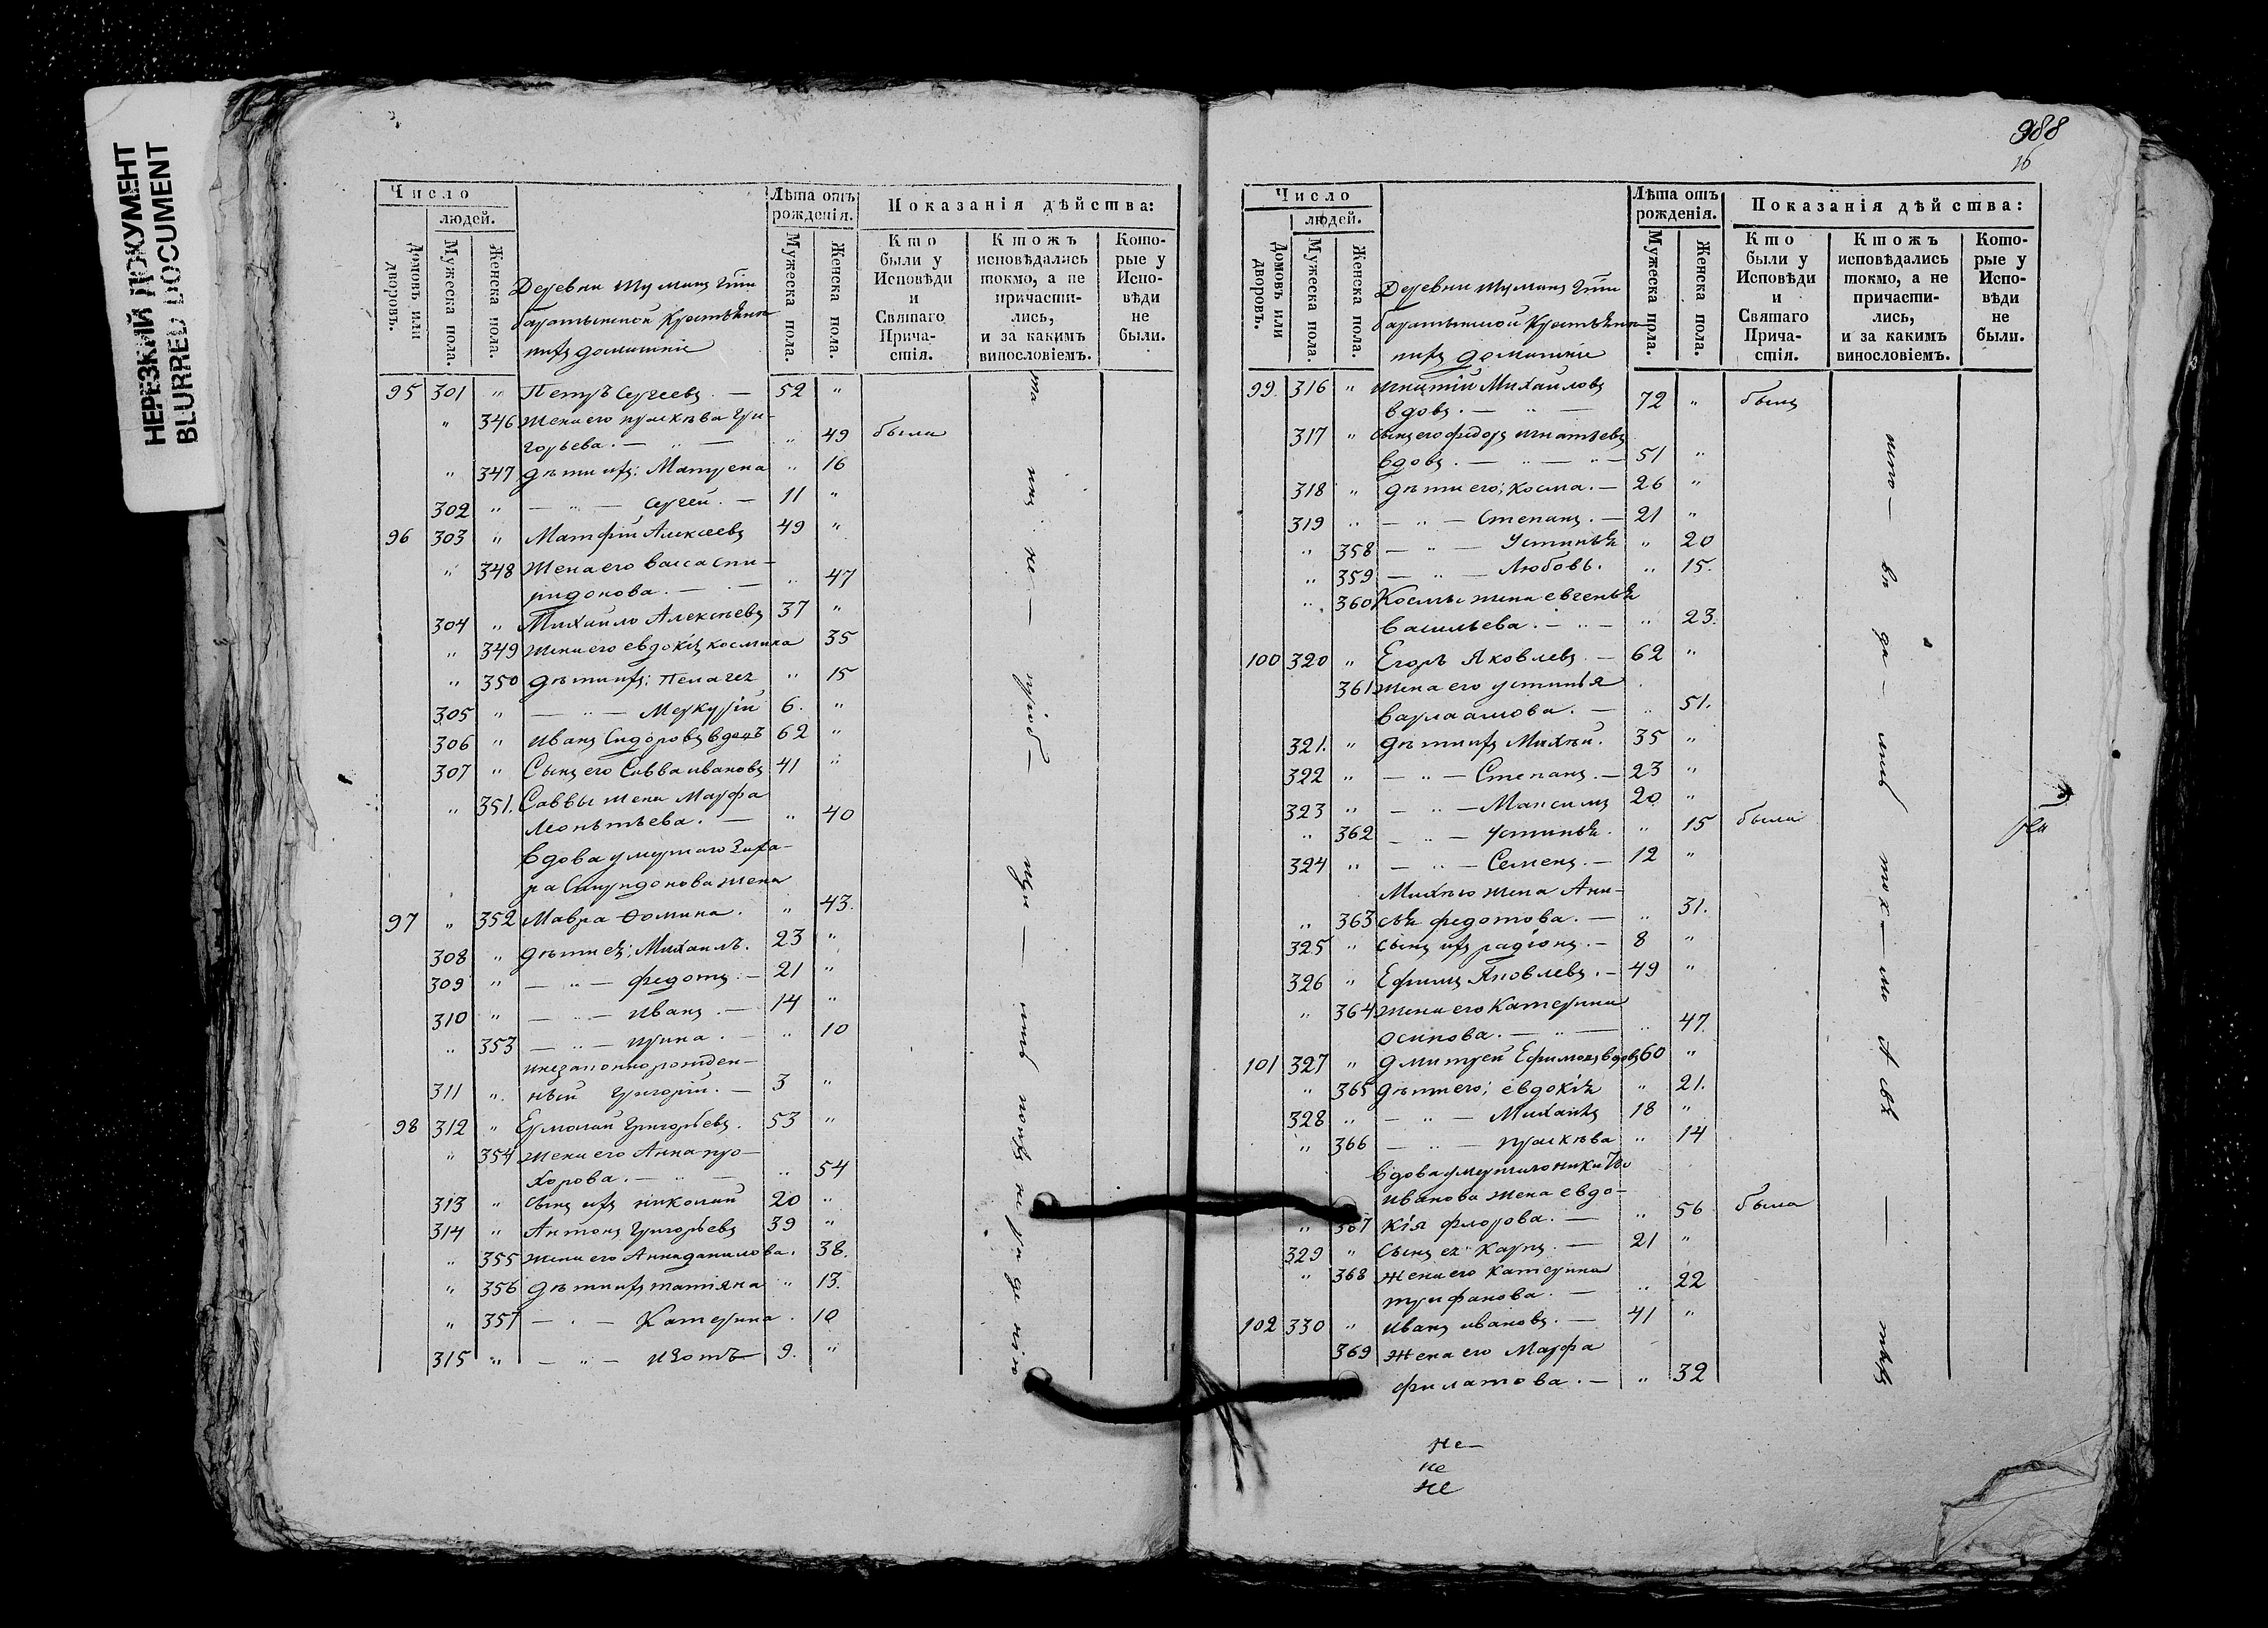 НЕРЕЗКИЙ ДОКУМЕНТ
BLURRED DOCUMENT
Число
людей.
Домовъ или дворовъ.
Мужеска пола.
Женска пола.
Деревни
крестьяне
ихъ домашніе
Лѣта отъ рожденія.
Мужеска пола.
Женска пола.
Показанія дѣйства:
Кто были у Исповѣди и Святаго Причастія.
Ктожъ исповѣдались токмо, а не причастились, и за какимъ винословіемъ.
Которые у Исповѣди не были.
95 301 " Петръ Сергеевъ. — 52 "
" 346 Жена его прасковья Гри-
горьева. — " — " 49 были
" 347 дѣти ихъ: Матрена " 16
302 " — " — Сергей. — 11 "
96 303 " Матфій Алексеевъ 49 "
" 348 Жена его васса спи-
ридонова. — " 47
304 " Михайло Алексѣевъ 37 "
" 349 жена его евдокія космина 35
" 350 дѣти ихъ: Пелагея " 15
305 " — " — Меркурій 6. "
306 " иванъ Сидоровъ вдовъ 62 "
307 " Сынъ его Савва ивановъ 41 "
" 351. Саввы жена Марфа
леонтьева. — " 40
вдова умершаго Заха-
ра Спиридонова жена
97 " 352 Мавра Ѳомина. " 43.
308 " дѣти ея: Михаилъ. 23 "
309 " — " — федотъ. — 21 "
310 " — " — иванъ. — 14 "
" 353 — " — ирина. — " 10
незаконнорожден-
311 " ный Григорій. — 3 "
98 312 " Ермолай Григорьевъ. 53 "
" 354 жена его Анна про-
хорова. — " — " 54
313 " сынъ ихъ николай 20 "
314 " Антонъ Григорьевъ 39 "
" 355 жена его Анна данилова. 38.
" 356 дѣти ихъ татіяна " 13.
" 357 — " — Катерина. 10
315 " — " — изотъ — 9. "
988
16
Число
людей.
Домовъ или дворовъ.
Мужеска пола.
Женска пола.
Деревни
крестьяне
ихъ домашніе
Лѣта отъ рожденія.
Мужеска пола.
Женска пола.
Показанія дѣйства:
Кто были у Исповѣди и Святаго Причастія.
Ктожъ исповѣдались токмо, а не причастились, и за какимъ винословіемъ.
Которые у Исповѣди не были.
99. 316 " игнатій Михайловъ
вдовъ. — " — 72 " былъ
317 " сынъ его федоръ игнатьевъ
вдовъ. — " — " — 51 "
318 " дѣти его; косма. — 26 "
319 " — " — Степанъ. — 21 "
" 358 — " — Устинья " 20
" 359 — " — Любовь. " 15.
" 360 Космы жена евгенья
васильева. — " — " 23.
100 320 " Егоръ Яковлевъ. — 62 "
361 жена его устинья
варлаамова. — " 51.
321. " дѣти ихъ Михѣй. 35 "
322 " — " — Степанъ. — 23 "
323 " — " — Максимъ 20 "
" 362 — " — устинья. " 15 была
324 " — " — Семенъ. — 12 "
Михѣя жена Ани-
" 363 сья федотова. — " 31.
325 " сынъ ихъ радіонъ. — 8 "
326 " Ефимъ Яковлевъ. — 49 "
" 364 жена его Катерина
осипова. — " — " 47.
101 327 " дмитрей Ефимовъ вдовъ 60 "
" 365 дѣти его; евдокія " 21.
328 " — " — Михаилъ 18 "
" 366 — " — праскѣва " 14
вдова умершаго
иванова жена евдо-
" 367 кія флорова. — " 56 была
329 " сынъ ея карпъ. — 21 "
" 368 жена его катерина
трифанова. — " 22
102 330 " иванъ ивановъ. — 41 "
369 Жена его Марфа
филатова. — " 32
не
не
не